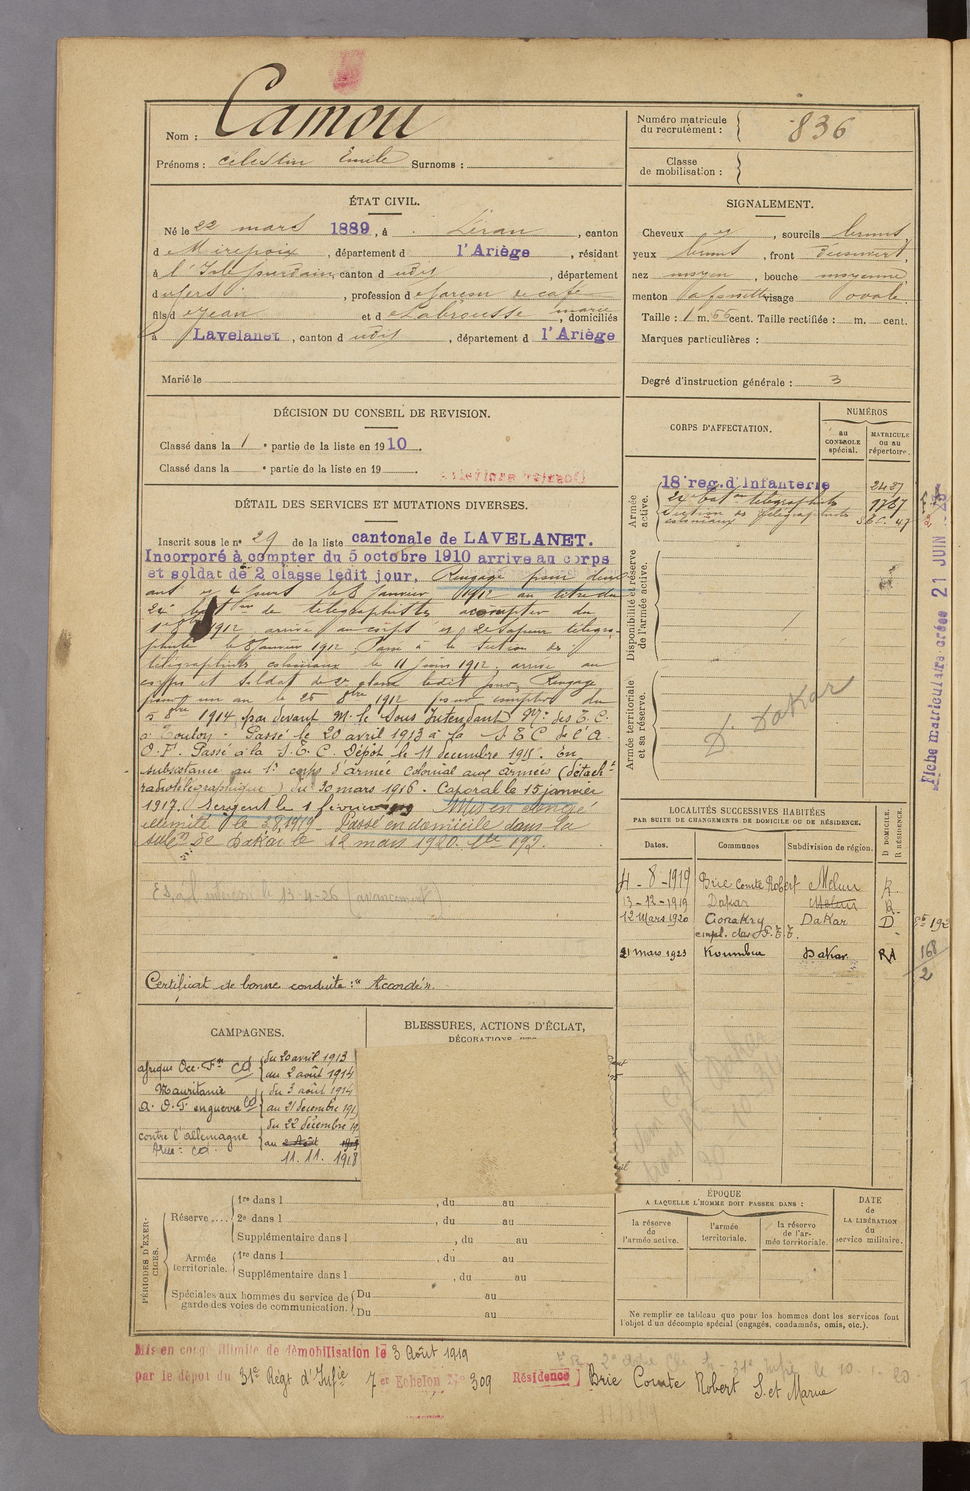 Nom : Camou
Prénoms : Célestin Emile Surnoms :
Numéro matricule du recrutement : 836
Classe de mobilisation :
ÉTAT CIVIL.
Né le 22 mars 1889, à Léran, canton
d Mirepoix, département d l'Ariège, résidant
à l'Isle Jourdain, canton d udit, département
d u Gers, profession d e garçon de café
fils d e Jean et d e Labrousse marie, domiciliés
à Lavelanet, canton d udit, département d l'Ariège
Marié le
SIGNALEMENT.
Cheveux et, sourcils bruns
yeux bruns, front découvert,
nez moyen, bouche moyenne,
menton à fossette visage ovale.
Taille : 1 m. 55 cent. Taille rectifiée : m. cent.
Marques particulières :
Degré d'instruction générale : 3
DÉCISION DU CONSEIL DE REVISION.
Classé dans la 1e partie de la liste en 1910.
Classé dans la e partie de la liste en 19 .
DÉTAIL DES SERVICES ET MUTATIONS DIVERSES.
Inscrit sous le n° 29 de la liste cantonale de LAVELANET.
Incorporé à compter du 5 octobre 1910 arrive au corps
et soldat de 2 classe ledit jour, Rengagé pour deux
ans et 4 jours le 8 Janvier 1912 au titre du
24e bat on de télégraphistes à compter du
1912 arrivé au corps et 2e sapeur télégra-
phiste le 8 Janvier 1912 Passé à la section de
télégraphistes coloniaux le 11 Juin 1912, arrivé au
corps et soldat de 2e classe ledit jour, Rengagé
pour un an le 25 8bre 1912 pour compter du
5 8bre 1914 par devant M. le Sous Intendant Mre des T.C.
à Toulon - Passé le 20 avril 1913 à la S.T.C de l'A.
O.F. Passé à la S.T.C. Dépôt le 11 décembre 1915. En
subsistance au 1er corps d'armée Colonial aux armées (détacht
radiotélégraphique) du 30 mars 1916. Caporal le 15 janvier
1917. Sergent le 1 février Mis en congé
illimité le 3.8.1919 - Passé en domicile dans la
subd on de Dakar le 12 mars 1920.
Certificat de bonne conduite : "Accordé".
CORPS D'AFFECTATION.
NUMÉROS
au CONTROLE spécial.
MATRICULE ou au répertoire.
Armée active.
18e reg. d'Infanterie 2437
24e bat on télégraphistes 1787
Section de télégraphistes coloniaux
Disponibilité et réserve de l'armée active.
Armée territoriale et sa réserve.
D. Dakar
Fiche matriculaire créée 21 JUIN
LOCALITÉS SUCCESSIVES HABITÉES
PAR SUITE DE CHANGEMENTS DE DOMICILE OU DE RÉSIDENCE.
Dates. Communes Subdivision de région. D DOMICILE. R RÉSIDENCE.
4-8-1919 Brie Comte Robert Melun R.
13-12-1919 Dakar Melun R.
12 Mars 1920 Conakry Dakar D
empl. des P.T.T.
21 mars 1923 Koumbia Dakar RA
168
2
CAMPAGNES.
Afrique Occ. Fse Cd du 20 avril 1913
au 2 août 1914
Mauritanie du 3 août 1914
A.O.F. en guerre Cd au 21 décembre 191
contre l'Allemagne du 22 décembre 19
au 2 Août 1919
11. 11. 1918
BLESSURES, ACTIONS D'ÉCLAT,
PÉRIODES D'EXERCICES.
Réserve.... 1re dans l , du au
2e dans l , du au
Supplémentaire dans l , du au
Armée territoriale. 1re dans l , du au
Supplémentaire dans l , du au
Spéciales aux hommes du service de garde des voies de communication. Du au
Du au
ÉPOQUE
A LAQUELLE L'HOMME DOIT PASSER DANS :
la réserve de l'armée active.
l'armée territoriale.
la réserve de l'armée territoriale.
DATE de LA LIBÉRATION du service militaire.
Ne remplir ce tableau que pour les hommes dont les services font
l'objet d'un décompte spécial (engagés, condamnés, omis, etc.).
Mis en congé illimité de démobilisation le 3 Août 1919
par le dépôt du 31e Régt d'Infie 7er Echelon N° 309 Résidence Brie Comte Robert S. et Marne